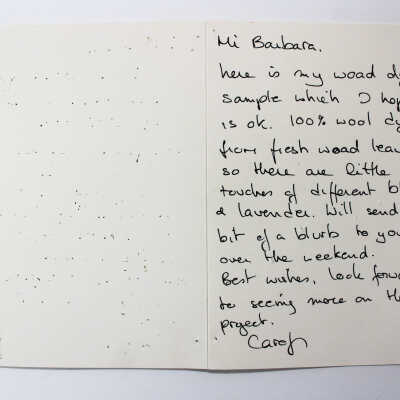 Hi Barbara,
here is my woad dy
sample which I hop
is ok. 100% wool dy
from fresh woad leav
so there are little
touches of different bl
& lavender. Will send
bit of a blurb to you
over the weekend.
Best wishes, look forwa
to seeing more on th
project.